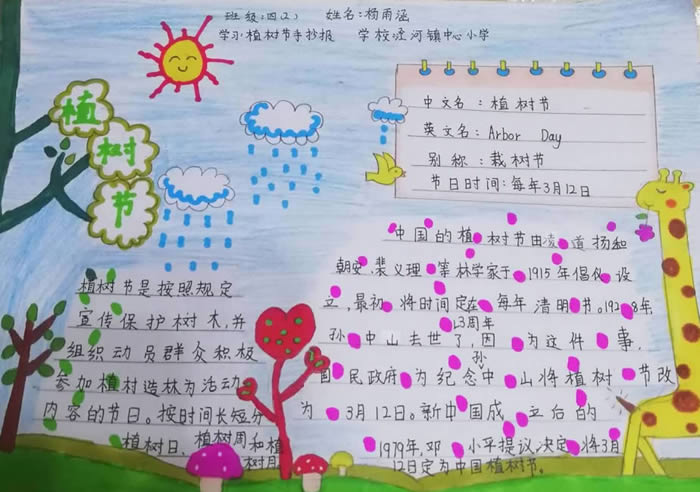 班级:四(2) 姓名:杨雨涵
学习植树节手抄报 学校:泾河镇中心小学
植
树
节
中文名:植树节
英文名:Arbor Day
别称:栽树节
节日时间:每年3月12日
植树节是按照规定
宣传保护树木,并
组织动员群众积极
参加植树造林为活动
内容的节日。按时间长短分
植树日、植树周和植
树月
中国的植树节由凌道扬和
朝安、裴义理等林学家于1915年倡仪设
立,最初将时间定在每年清明节。1928年,
孙中山去世了3周年,因为这件事,
国民政府为纪念孙中山将植树节改
为3月12日。新中国成立后的
1979年,邓小平提议,决定将3月
12日定为中国植树节。